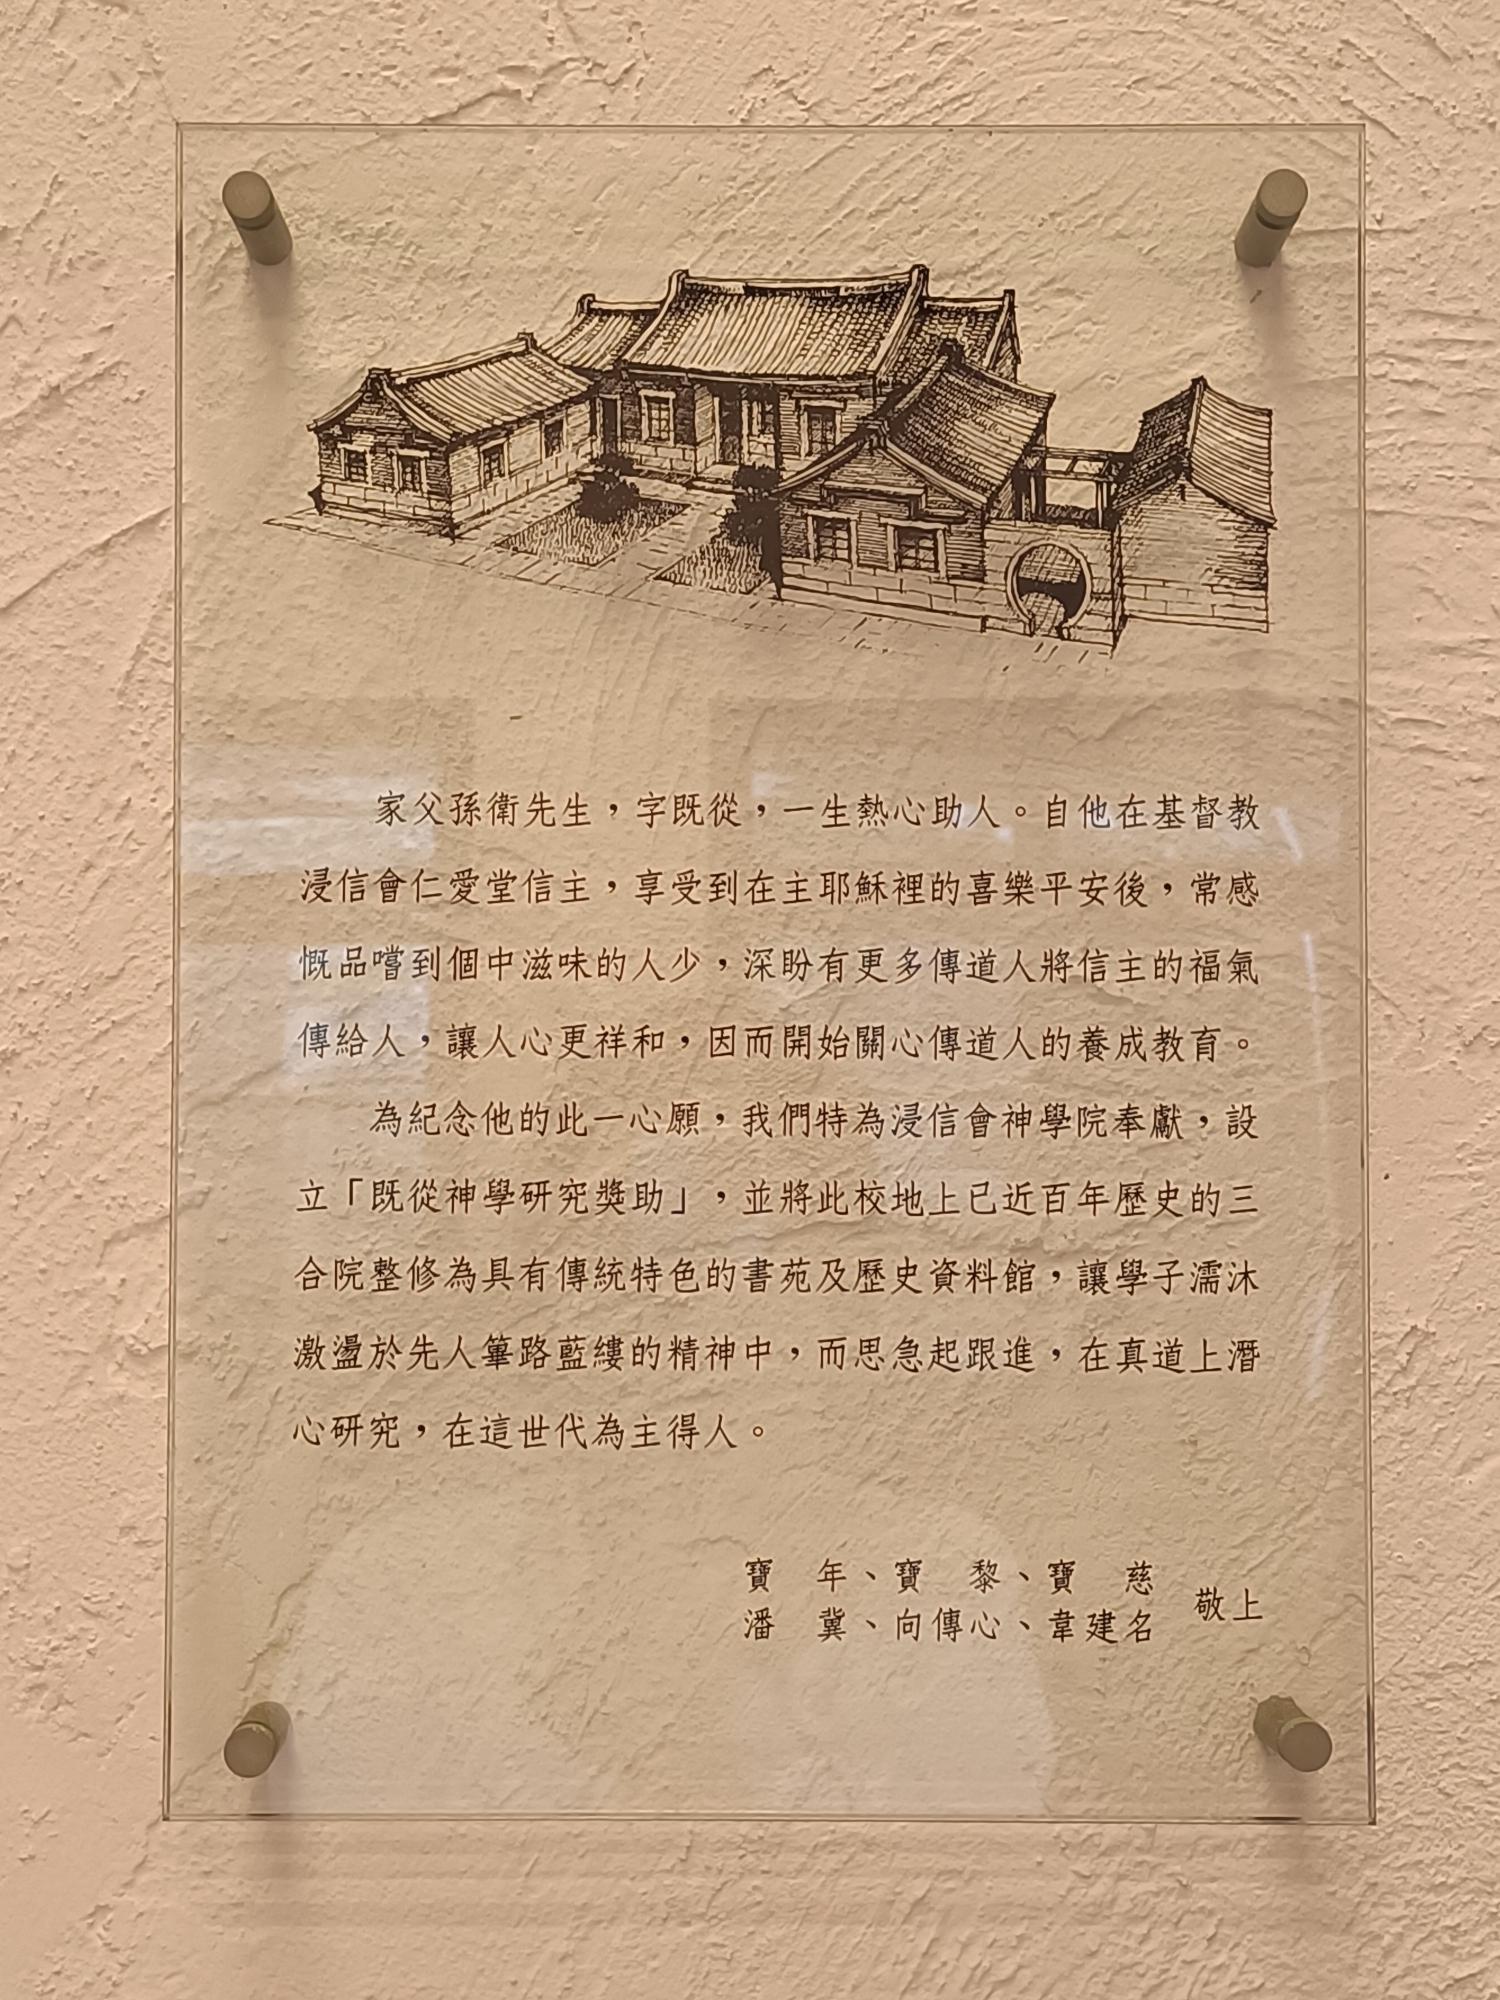 家父孫衛先生，字既從，一生熱心助人。自他在基督教
浸信會仁愛堂信主，享受到在主耶穌裡的喜樂平安後，常感
慨品嚐到個中滋味的人少，深盼有更多傳道人將信主的福氣
傳給人，讓人心更祥和，因而開始關心傳道人的養成教育。
為紀念他的此一心願，我們特為浸信會神學院奉獻，設
立「既從神學研究獎助」，並將此校地上已近百年歷史的三
合院整修為具有傳統特色的書苑及歷史資料館，讓學子濡沐
激盪於先人篳路藍縷的精神中，而思急起跟進，在真道上潛
心研究，在這世代為主得人。
寶　年、寶　黎、寶　慈
敬上
潘　冀、向傳心、韋建名